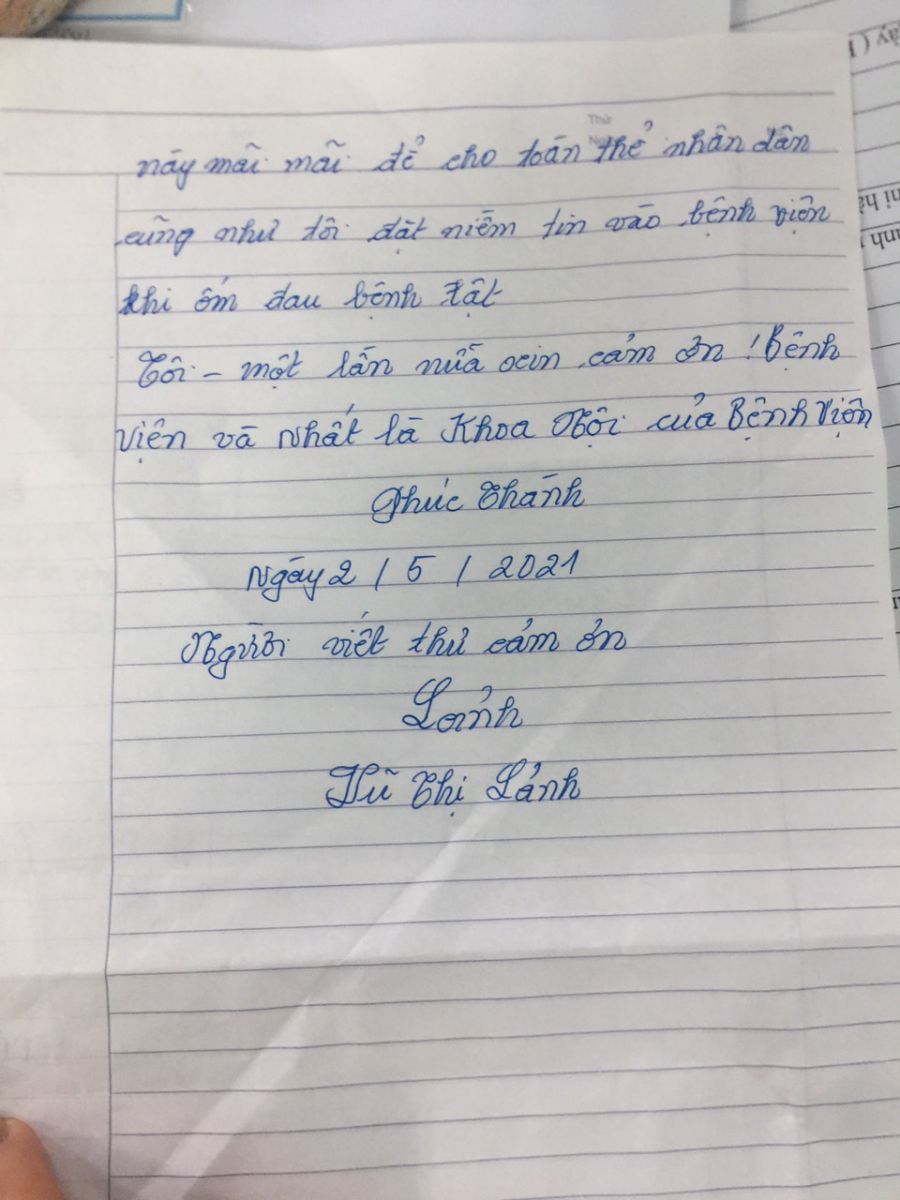 này mãi mãi để cho toàn thể nhân dân
cũng như tôi đặt niềm tin vào bệnh viện
khi ốm đau bệnh tật
Tôi - một lần nữa xin cảm ơn ! Bệnh
viện và nhất là Khoa Nội của Bệnh Viện
Phúc Thành
Ngày 2 / 5 / 2021
Người viết thư cảm ơn
Lảnh
Thị Lảnh
Thứ